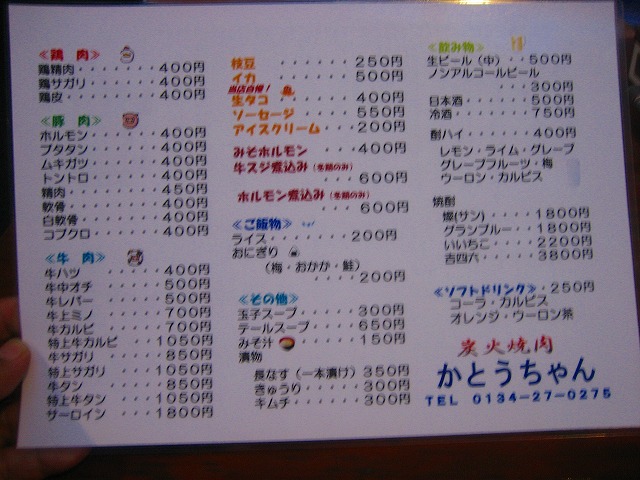 ≪鶏 肉≫
鶏精肉・・・・・・・400円
鶏サガリ・・・・・・400円
鶏皮・・・・・・・・400円
≪豚 肉≫
ホルモン・・・・・・400円
ブタタン・・・・・・400円
ムキガツ・・・・・・400円
トントロ・・・・・・400円
精肉・・・・・・・・450円
軟骨・・・・・・・・400円
白軟骨・・・・・・・400円
コブクロ・・・・・・400円
≪牛 肉≫
牛ハツ・・・・・・・400円
牛中オチ・・・・・・500円
牛レバー・・・・・・500円
牛上ミノ・・・・・・700円
牛カルビ・・・・・・700円
特上牛カルビ・・・・1050円
牛サガリ・・・・・・850円
特上サガリ・・・・・1050円
牛タン・・・・・・・850円
特上牛タン・・・・・1050円
サーロイン・・・・・1800円
枝豆・・・・・・250円
イカ・・・・・・500円
当店自慢！
生タコ・・・・・400円
ソーセージ・・・・550円
アイスクリーム・・・200円
みそホルモン・・・400円
牛スジ煮込み（冬期のみ）
・・・600円
ホルモン煮込み（冬期のみ）
・・・600円
≪ご飯物≫
ライス・・・・・・200円
おにぎり
（梅・おかか・鮭）
・・・・200円
≪その他≫
玉子スープ・・・・300円
テールスープ・・・650円
みそ汁・・・・150円
漬物
長なす（一本漬け）350円
きゅうり・・・・・300円
キムチ・・・・・・300円
≪飲み物≫
生ビール（中）・・500円
ノンアルコールビール
・・・300円
日本酒・・・・・500円
冷酒・・・・・・750円
酎ハイ・・・・・400円
レモン・ライム・グレープ
グレープフルーツ・梅
ウーロン・カルピス
焼酎
燦(サン)・・・・1800円
グランブルー・・1800円
いいちこ・・・・2200円
吉四六・・・・・3800円
≪ソフトドリンク≫・250円
コーラ・カルピス
オレンジ・ウーロン茶
炭火焼肉
かとうちゃん
TEL 0134-27-0275